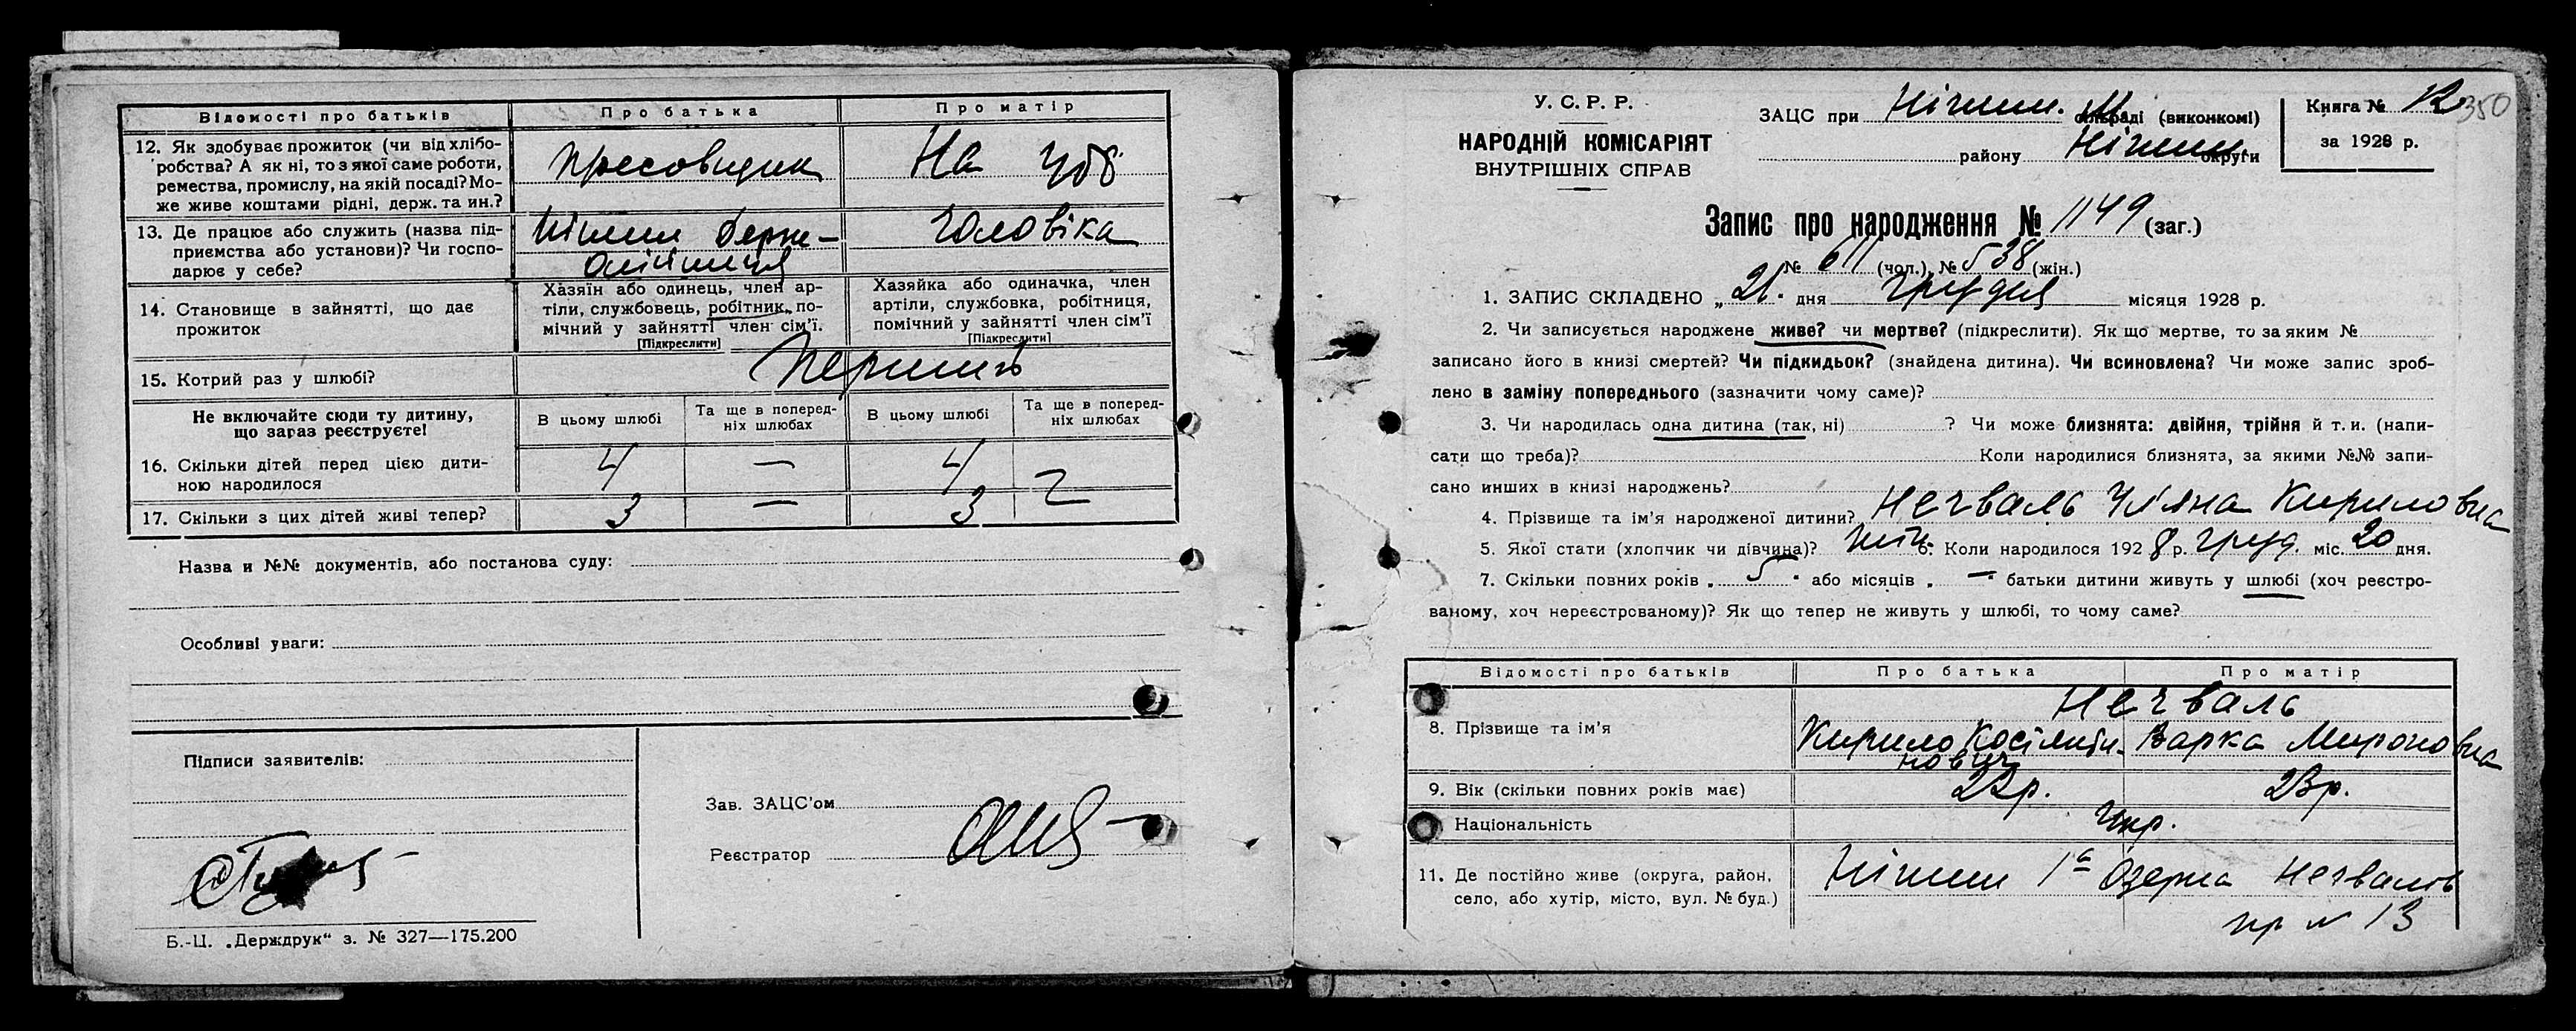 Відомості про батьків
Про батька
Про матір
12. Як здобуває прожиток (чи від хлібо-
робства? А як ні, то з якої саме роботи,
ремества, промислу, на якій посаді? Мо-
же живе коштами рідні, держ. та ин.?
пресовщик
На утр
13. Де працює або служить (назва під-
приємства або установи)? Чи госпо-
дарює у себе?
Ніжин держ-
олійниця
чоловіка
14. Становище в зайнятті, що дає
прожиток
Хазяїн або одинець, член ар-
тіли, службовець, робітник, по-
мічний у зайнятті член сім'ї.
[Підкреслити]
Хазяйка або одиначка, член
артіли, службовка, робітниця,
помічний у зайнятті член сім'ї
[Підкреслити]
15. Котрий раз у шлюбі?
Перший
Не включайте сюди ту дитину,
що зараз реєструєте!
В цьому шлюбі
Та ще в поперед-
ніх шлюбах
В цьому шлюбі
Та ще в поперед-
ніх шлюбах
16. Скільки дітей перед цією дити-
ною народилося
4 — 4
17. Скільки з цих дітей живі тепер?
3 — 3
Назва и №№ документів, або постанова суду:
Особливі уваги:
Підписи заявителів:
Зав. ЗАЦС'ом
Реєстратор
Б.-Ц. „Держдрук“ з. № 327—175.200
У. С. Р. Р.
НАРОДНІЙ КОМІСАРІЯТ
ВНУТРІШНІХ СПРАВ
ЗАЦС при Ніжин. сільраді (виконкомі)
району Ніжин. округи
Книга № 12
за 1928 р.
350
Запис про народження № 1149 (заг.)
№ 611 (чол.), № 538 (жін.)
1. ЗАПИС СКЛАДЕНО „21. дня грудня місяця 1928 р.
2. Чи записується народжене живе? чи мертве? (підкреслити). Як що мертве, то за яким №
записано його в книзі смертей? Чи підкидьок? (знайдена дитина). Чи всиновлена? Чи може запис зроб-
лено в заміну попереднього (зазначити чому саме)?
3. Чи народилась одна дитина (так, ні) ? Чи може близнята: двійня, трійня й т. и. (напи-
сати що треба)? Коли народилися близнята, за якими №№ запи-
сано инших в книзі народжень?
4. Прізвище та ім'я народженої дитини? Нечваль Уляна Кириловна
5. Якої стати (хлопчик чи дівчина)? жін. 6. Коли народилося 1928 р. груд. міс. 20 дня.
7. Скільки повних років „ 5 “ або місяців „ — “ батьки дитини живуть у шлюбі (хоч реєстро-
ваному, хоч нереєстрованому)? Як що тепер не живуть у шлюбі, то чому саме?
Відомості про батьків
Про батька
Про матір
8. Прізвище та ім'я
Нечваль
Кирило Косіянти-
нович
Варка Мироновна
9. Вік (скільки повних років має)
23р.
Національність
Укр.
11. Де постійно живе (округа, район,
село, або хутір, місто, вул. № буд.)
Ніжин 1а Озерна Нечвалів
пр № 13